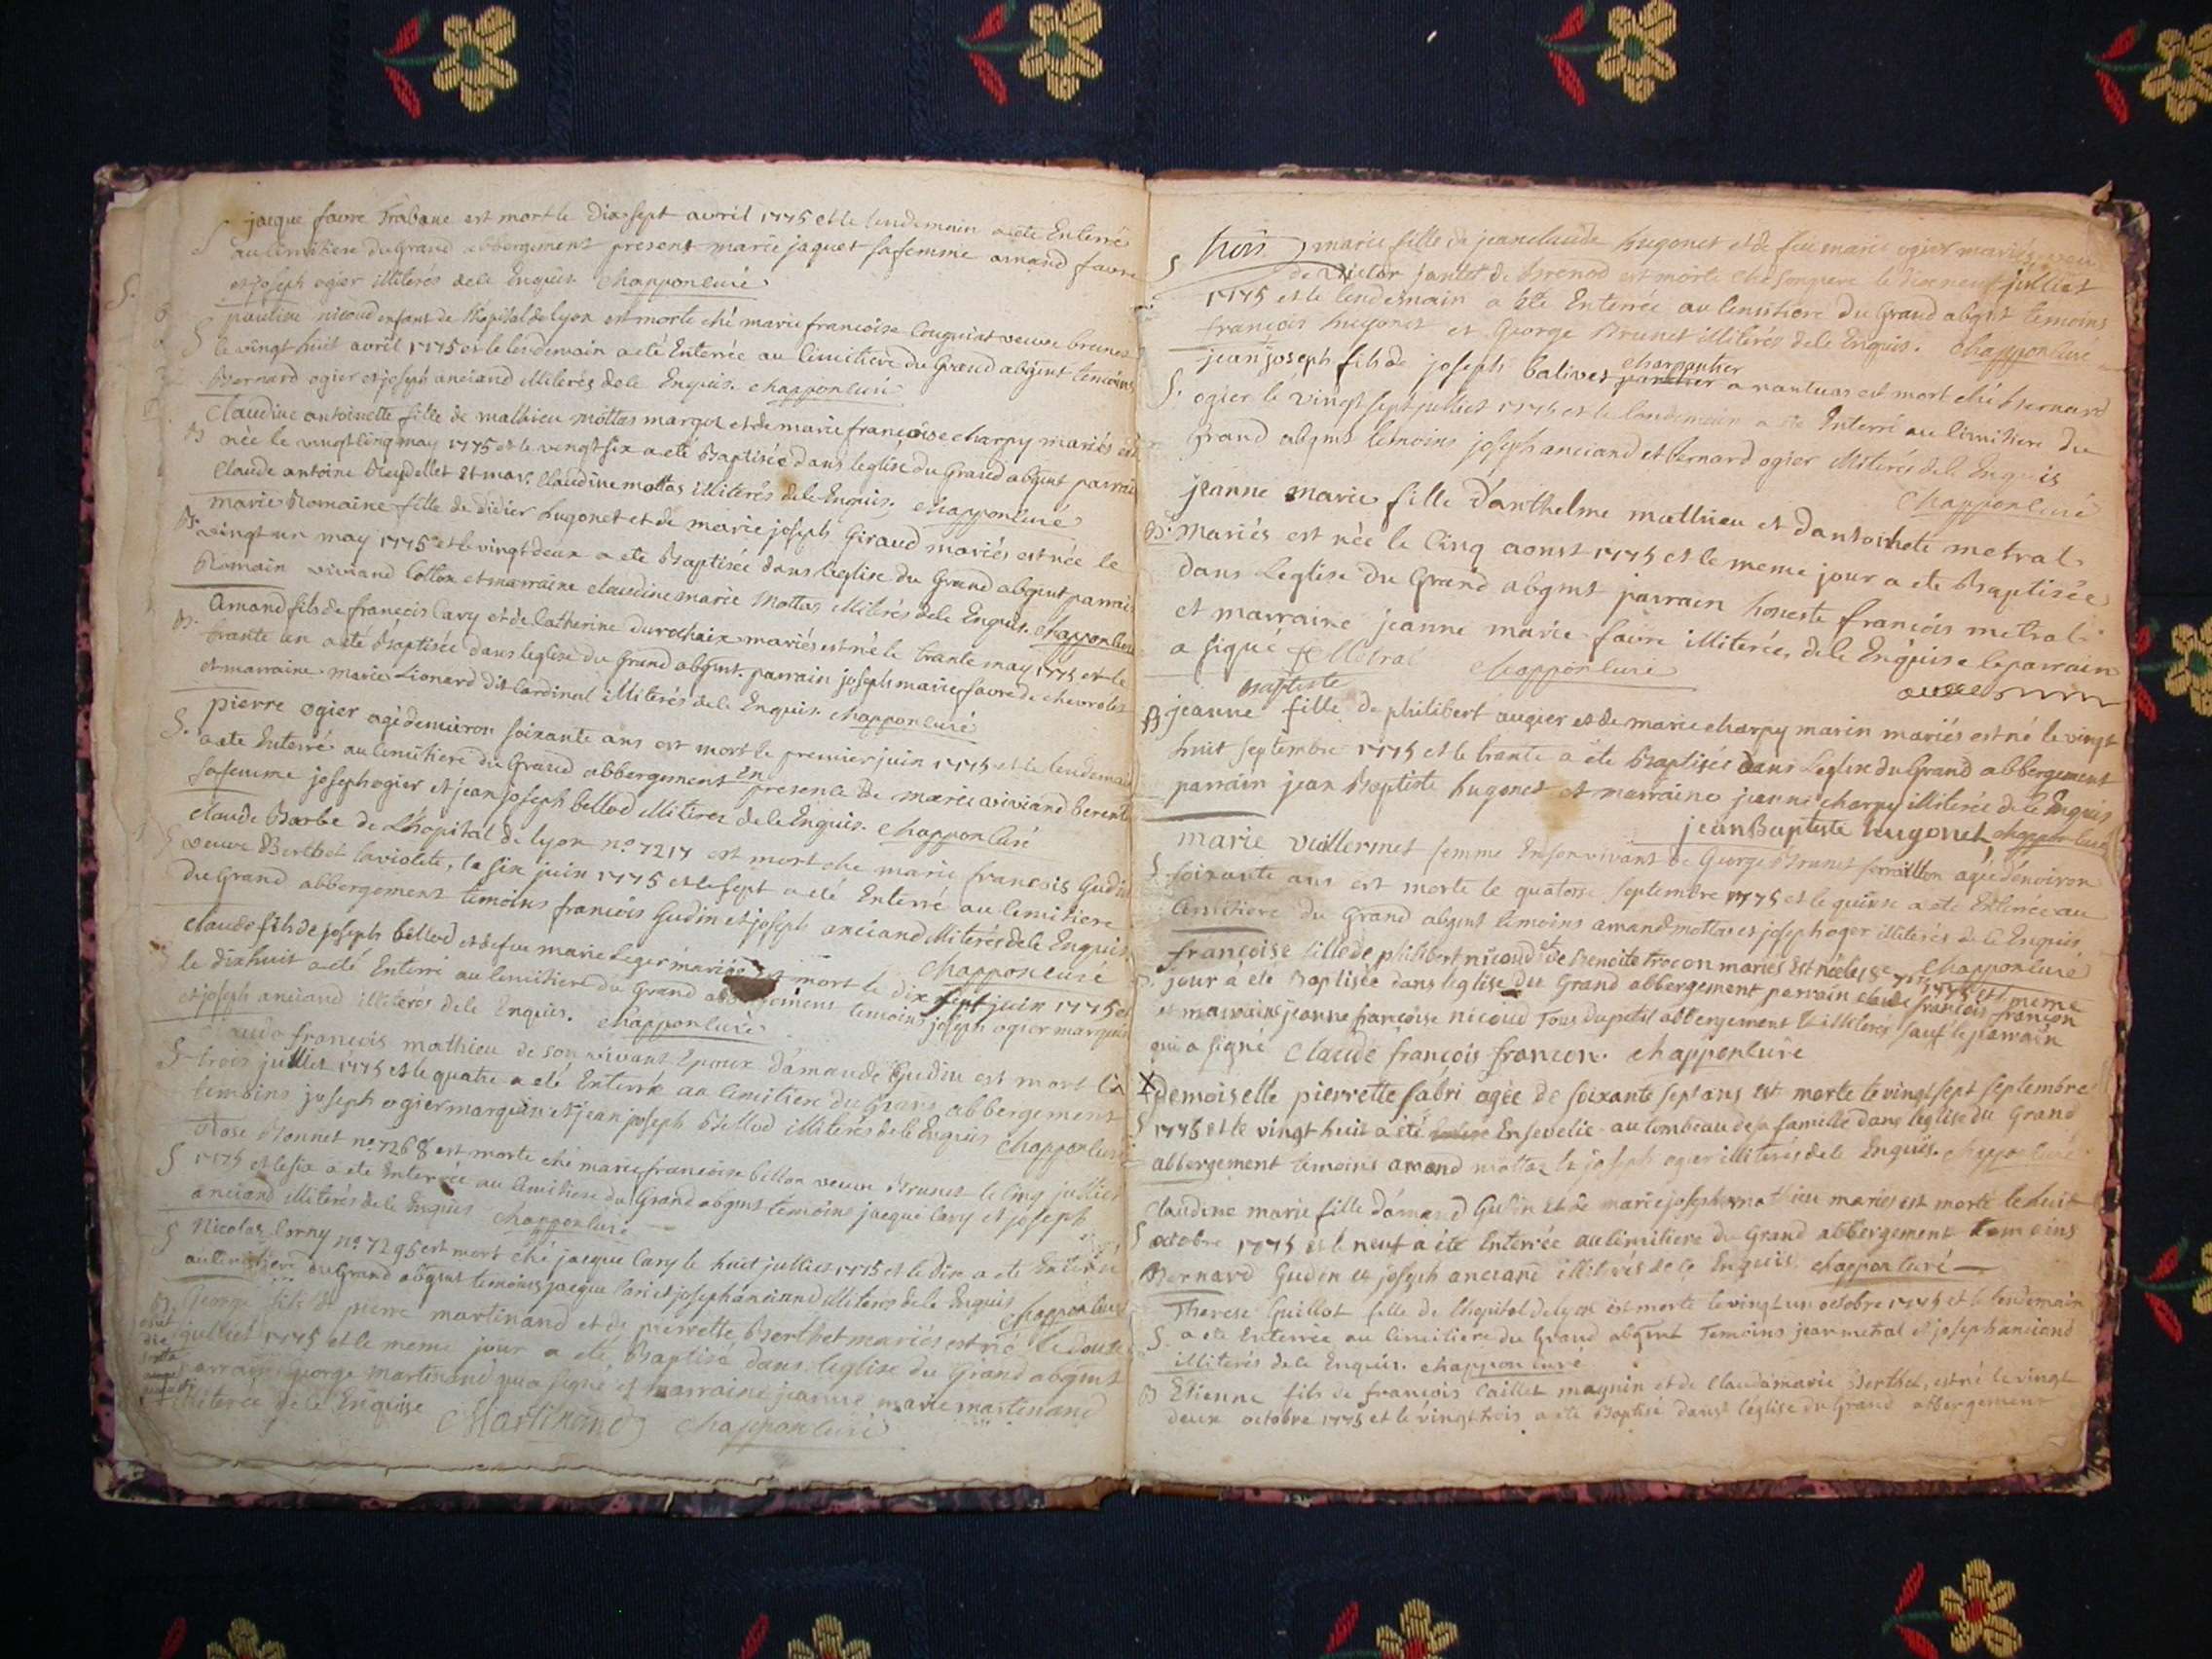 S jaque favre Trabaue est mort le dix sept avril 1775 et le lendemain a ete Enterré
au Cimitiere du Grand abbergement present marie jaquet sa femme amand favre
et joseph ogier illiterés de le Enquis. Chappon curé
pauline nicoud enfant de Lhopital de lyon est morte ché marie francoise Couquiat veuve brunet
S le vingt huit avril 1775 et le lendemain a eté Enterrée au Cimitiere du Grand abgmt temoins
Bernard ogier et joseph anciand illiterés de le Enquis. Chappon curé
Claudine antoinette fille de mathieu mottas margot et de marie francoise charpy mariés est
B née le vingt cinq may 1775 et le vingt six a eté Baptisée dans leglise du Grand abgmt parrain
Claude antoine Reydellet et mar. Claudine mottas illiterés de le Enquis. Chappon curé
marie Romaine fille de didier hugonet et de marie joseph Giraud mariés est née le
B. vingt un may 1775 et le vingt deux a ete Baptisée dans leglise du Grand abgmt parrain
Romain viviand Cotton et marraine claudine marie Mottas illiterés de le Enquis. Chappon curé
Amand fils de francois Cary et de Catherine durochaix mariés est né le trante may 1775 et le
B. trante un a ete Baptisée dans leglise du Grand abgmt. parrain joseph marie favre de chevroles
et marraine marie Lionard dit Cardinal illiterés de le Enquis. Chappon curé
pierre ogier agé denviron soixante ans est mort le premier juin 1775 et le lendemain
S. a ete Enterré au Cimitiere du Grand abbergement En presence de marie viviand berent
sa femme joseph ogier et jean joseph bellod illiteres de le Enquis. Chappon curé
Claude Barbe de Lhopital de lyon no 7217 est mort che marie francois Gudin
S veuve Berthet laviolete, le six juin 1775 et le sept a eté Enterré au Cimitiere
du Grand abbergement temoins francois Gudin et joseph anciand illiterés de le Enquis
Chappon curé
claude fils de joseph bellod et de feu marie Leger mariés est mort le dix sept juin 1775 et
le dixhuit a eté Enterré au Cimitiere du Grand abbergement temoins joseph ogier marquin
et joseph anciand illiterés de le Enquis. Chappon curé
francois mathieu de son vivant Epoux damaude Gudin est mort le
S trois juillet 1775 et le quatre a eté Enterré au Cimitiere du Grand abbergement
temoins joseph ogier marquin et jean joseph Bellod illiterés de le Enquis Chappon curé
Rose Bonnet no. 7268 est morte ché marie francoise billon veuve Brunet le Cinq juillet
S 1775 et le six a ete Enterrée au Cimitiere du Grand abgmt temoins jacque Cary et joseph
anciand illiterés de le Enquis Chappon curé
S Nicolas Corny no. 7295 est mort ché jacque Cary le huit juillet 1775 et le dix a ete Enterré
au Cimitiere du Grand abgmt temoins jacque Cari et joseph anciand illiterés de le Enquis
Chappon curé
B. George fils de pierre martinand et de pierrette Berthet mariés est né le douze
juillet 1775 et le meme jour a eté Baptisé dans leglise du Grand abgmt
parrain George martinand qui a signé et marraine jeanne marie martinand
illiterée de le Enquise Martinand Chappon curé
trois marie fille de jean claude hugonet et de feu marie ogier mariés
S de victor jantet de Brenod est morte ché son pere le dix neuf juillet
1775 et le lendemain a été Enterrée au Cimitiere du Grand abgmt temoins
francois hugonet et George Brunet illiterés de le Enquis. Chappon curé
charpantier
jean joseph fils de joseph balivet a nantuas est mort ché Bernard
S. ogier le vingt sept juillet 1775 et le lendemain a ete Enterré au Cimitiere du
Grand abgmt temoins joseph anciand et bernard ogier illiterés de le Enquis
Chappon curé
jeanne marie fille danthelme mathieu et dantoinete metral
B. Mariés est née le Cinq aoust 1775 et le meme jour a ete Baptisée
dans Leglise du Grand abgmt parrain honeste francois metral
et marraine jeanne marie favre illiterée, de le Enquise le parrain
a signé f Metral Chappon curé
Baptiste
B jeanne fille de philibert augier et de marie charpy marin mariés est né le vingt
huit septembre 1775 et le trante a ete Baptisée dans Leglise du Grand abbergement
parrain jean Baptiste hugonet et marraine jeanne charpy illiterée de le Enquis
jean Baptiste hugonet, Chappon curé
marie vuillermet femme En son vivant de George Brunet ferraillon agée denviron
S soixante ans est morte le quatorse septembre 1775 et le quinse a ete Enterrée au
Cimitiere du Grand abgmt temoins amand mottas et joseph ogier illiterés de le Enquis
Chappon curé
francoise fille de philibert nicoud et de benoite trocon mariés est née le 18e 7bre 1775 et meme
jour a été Baptisée dans leglise du Grand abbergement parrain claude francois francon
et marraine jeanne francoise nicoud Tous du petit abbergement et illiterés sauf le parrain
qui a signé Claude françois francon. Chappon curé
X demoiselle pierrette fabri agée de soixante sept ans est morte le vingt sept septembre
S 1775 et le vingt huit a été Ensevelie au tombeau de sa famille dans leglise du Grand
abbergement temoins amand mottas et joseph ogier illiterés de le Enquis. Chappon curé
Claudine marie fille damand Gudin et de marie joseph mathieu mariés est morte le huit
S octobre 1775 et le neuf a été Enterrée au Cimitiere du Grand abbergement temoins
Bernard Gudin et joseph anciand illiterés de le Enquis. Chappon curé
Therese Guillot fille de lhopital de lyon est morte le vingt un octobre 1775 et le lendemain
S. a ete Enterrée au Cimitiere du Grand abgmt Temoins jean metral et joseph anciand
illiterés de le Enquis. Chappon curé
B Etienne fils de francois Caillet magnin et de Claudamarie Berthet, est né le vingt
deux octobre 1775 et le vingt trois a ete Baptisé dans leglise du Grand abbergement